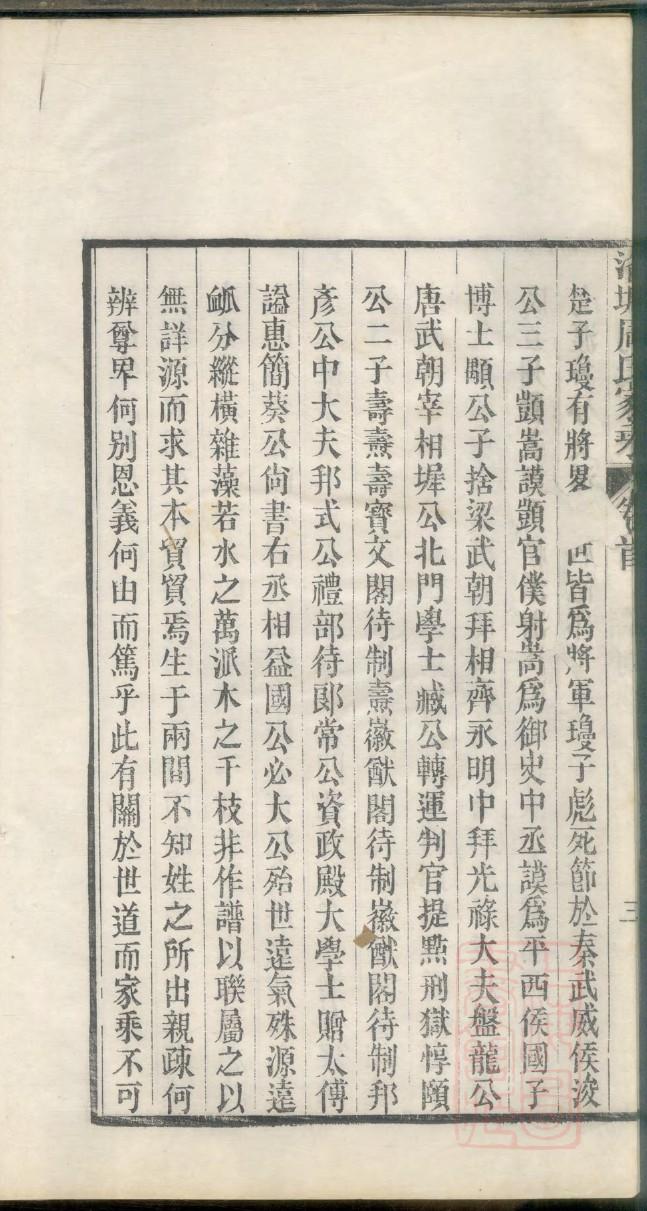 周氏家乘 卷首
三
楚子瓊有將畧 世皆爲將軍瓊子彪死節於秦武威侯浚
公三子顗嵩謨顗官僕射嵩爲御史中丞謨爲平西侯國子
博士顒公子捨梁武朝拜相齊永明中拜光祿大夫盤龍公
唐武朝宰相墀公北門學士臧公轉運判官提㸃刑獄惇頤
公二子壽燾壽寶文閣待制燾徽猷閣待制徽猷閣待制邦
彥公中大夫邦式公禮部待郞常公資政殿大學士贈太傅
謚惠簡葵公尙書右丞相益國公必大公殆世遠氣殊源遠
㼌分縱橫雜藻若水之萬派木之千枝非作譜以聯屬之以
無詳源而求其本貿貿焉生于兩間不知姓之所出親疎何
辨尊畀何别恩義何由而篤乎此有關於世道而家乘不可